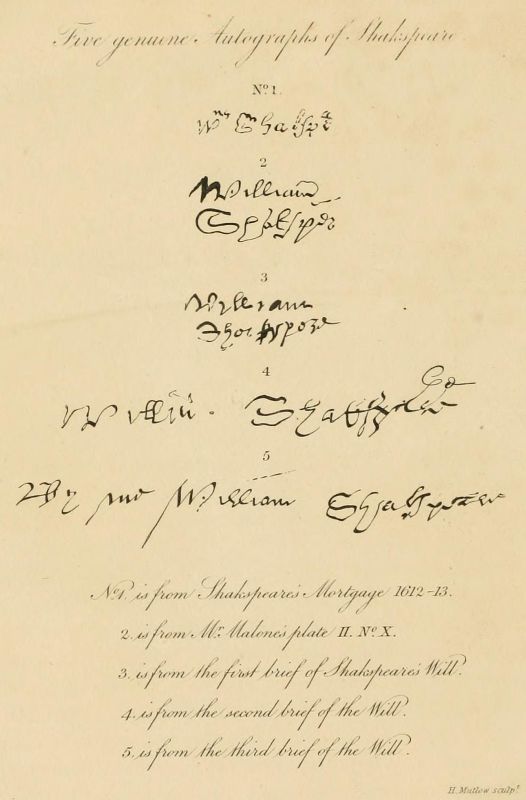 Five genuine Autographs of Shakspeare
No. 1.
Wm Shakspe
2
William
Shakspe
3
William
Shakspere
4
Willm Shakspere
5
By me William Shakspeare
No. 1. is from Shakspeare's Mortgage 1612-13.
2. is from Mr. Malone's plate II. No. X.
3. is from the first brief of Shakspeare's Will.
4. is from the second brief of the Will.
5. is from the third brief of the Will.
H. Mutlow sculpt.